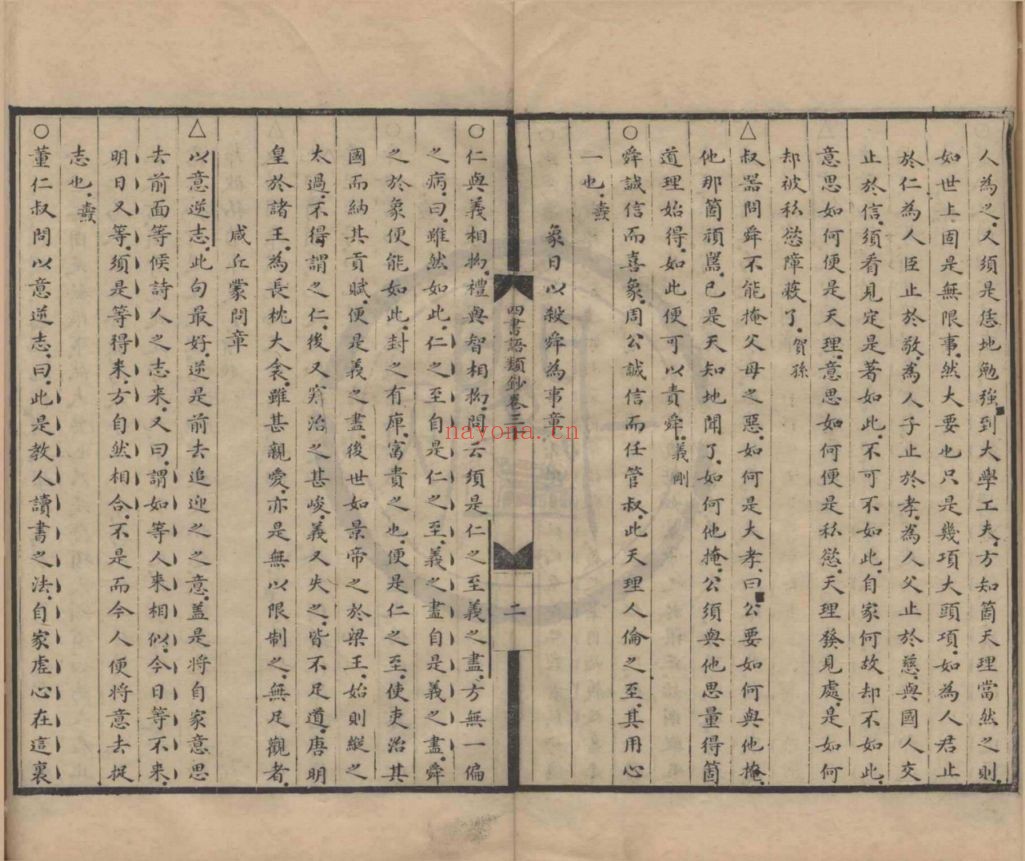 人為之又須是恁地勉強到大學工夫方知箇天理當然之則
如世上固是無限事然大要也只是幾項大頭項如為人君止
於仁為人臣止於敬為人子止於孝為人父止於慈與國人交
止於信須看見定是著如此不可不如此自家何故却不如此
意思如何便是天理意思如何便是私慾天理發見處是如何
却被私慾障蔽了賀孫
△叔器問舜不能掩父母之惡如何是大孝曰公要如何與他掩
他那箇頑嚚已是天知地聞了如何他掩公須與他思量得箇
道理始得如此便可以責舜義剛
○舜誠信而喜象周公誠信而任管叔此天理人倫之至其用心
一也燾
象日以殺舜為事章
四書語類鈔卷三
二
○仁與義相拗禮與智相拗問云須是仁之至義之盡方無一偏
之病曰雖然如此仁之至自是仁之至義之盡自是義之盡舜
之於象便能如此封之有庳富貴之也便是仁之至使吏治其
國而納其貢賦便是義之盡後世如景帝之於梁王始則縱之
太過不得謂之仁後又窘治之甚峻義又失之皆不足道唐明
皇於諸王為長枕大衾雖甚親愛亦是無以限制之無足觀者
咸丘蒙問章
△以意逆志此句最好逆是前去追迎之之意盖是將自家意思
去前面等候詩人之志来又曰謂如等人来相似今日等不来
明日又等須是等得来方自然相合不是而今人便將意去捉
志也燾
○董仁叔問以意逆志曰此是教人讀書之法自家虛心在這裏
nayona.cn